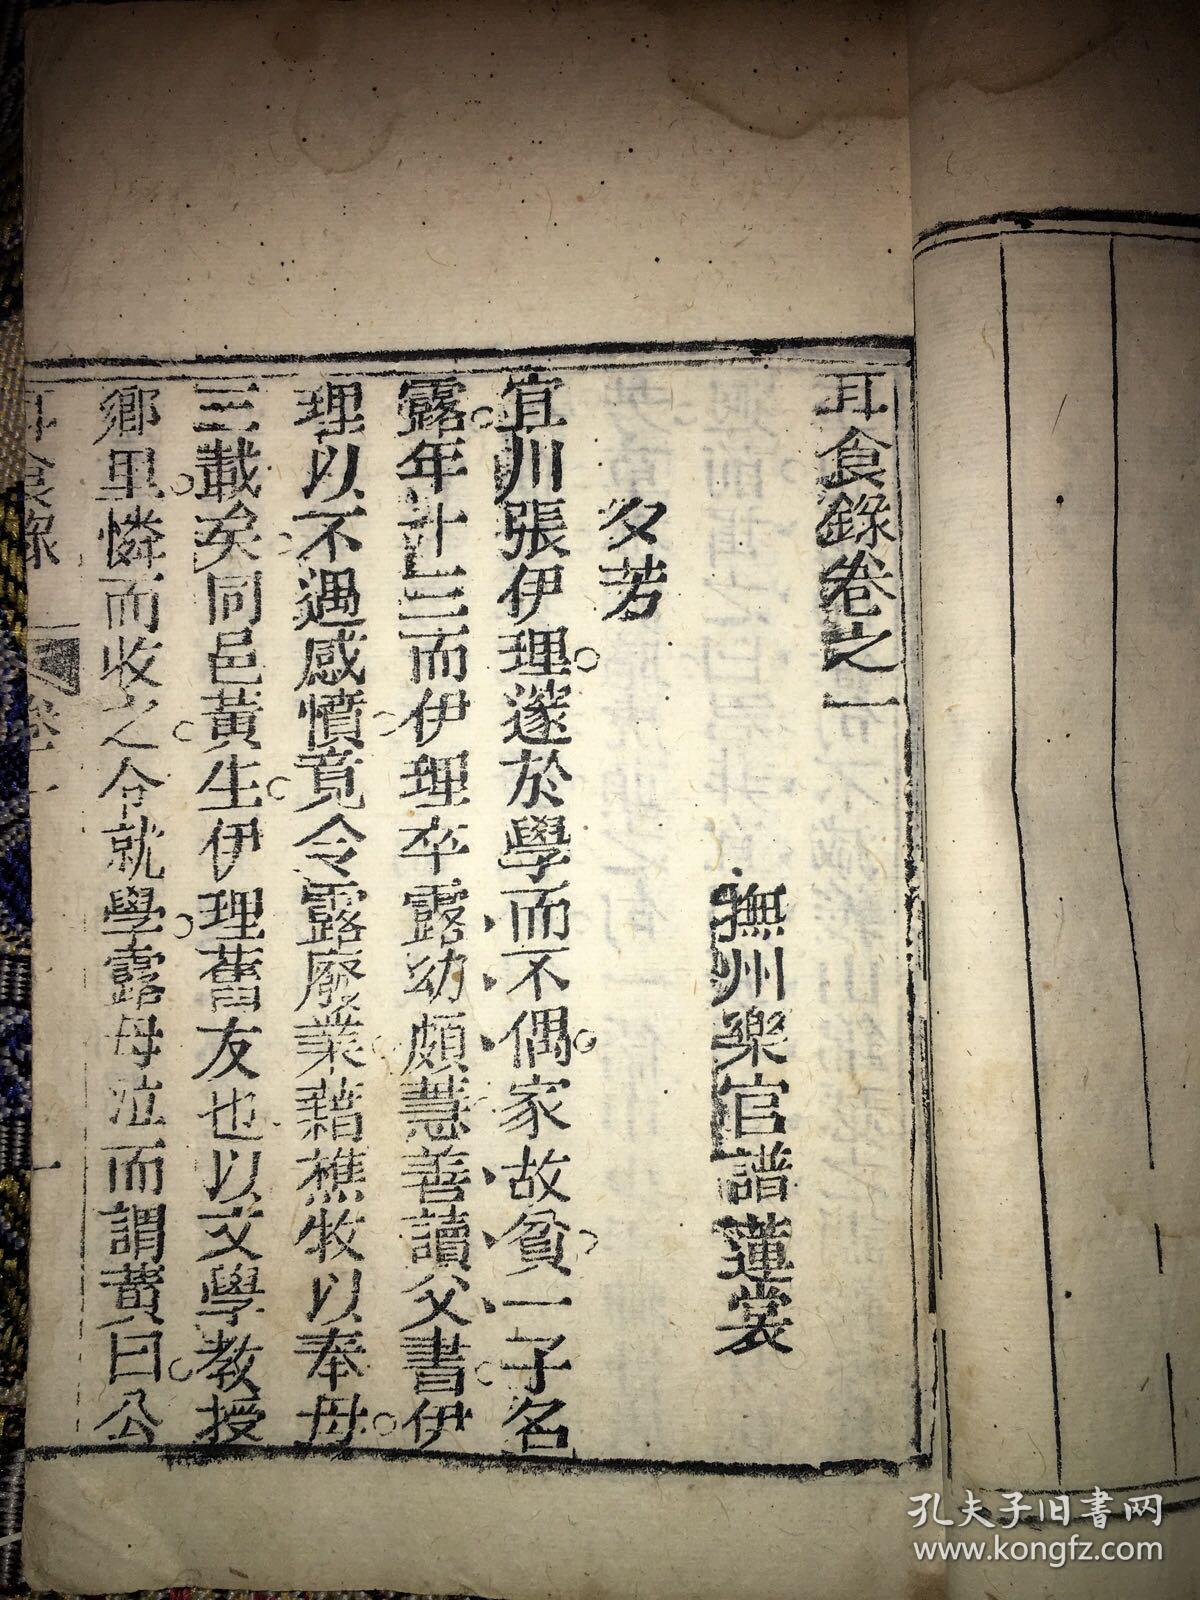 耳食錄卷之一
撫州樂官譜蓮裳
夕芳
宜川張伊理邃於學而不偶家故貧一子名
露年十三而伊理卒露幼頗慧善讀父書伊
理以不遇感憤竟令露廢業藉樵牧以奉母
三載矣同邑黃生伊理舊友也以文學教授
鄉里憐而收之令就學露母泣而謂黃曰公
耳食錄 卷一 一
孔夫子旧书网
www.kongfz.com